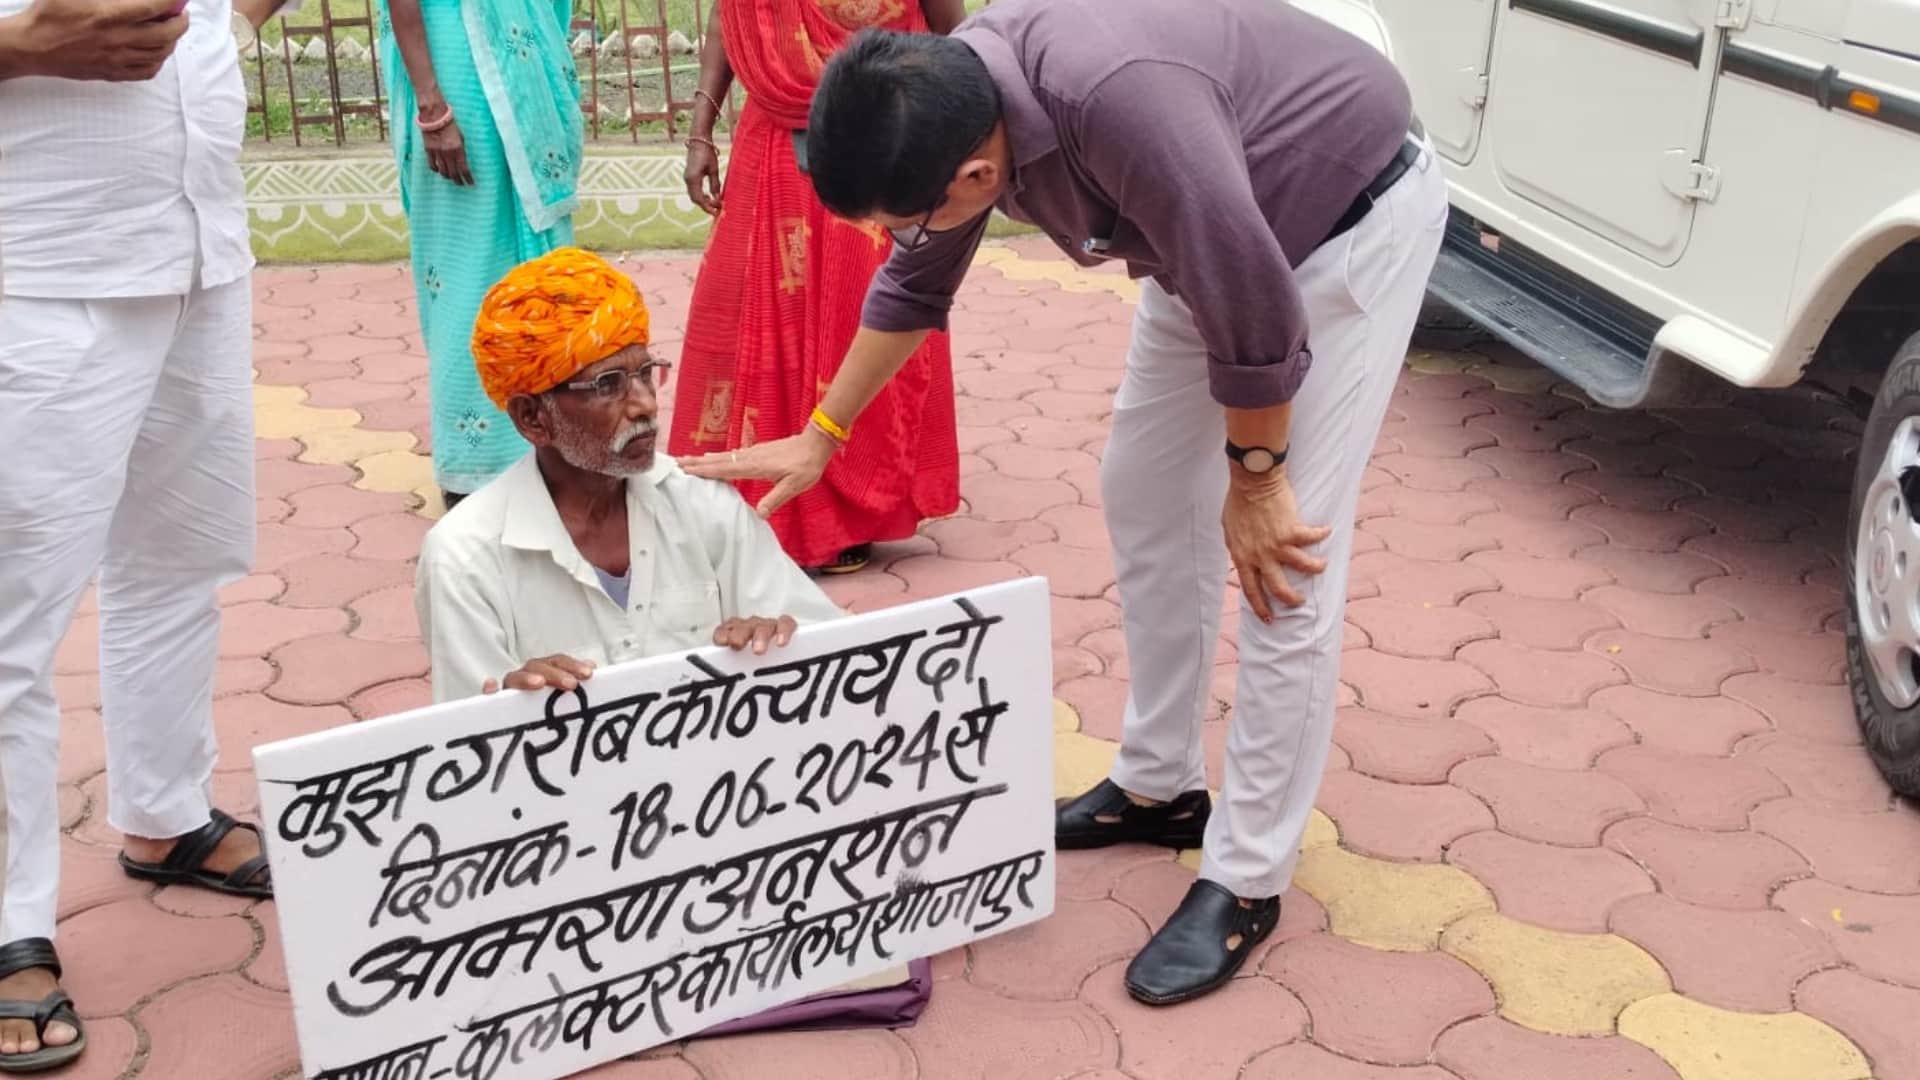 मुझ गरीब को न्याय दो
दिनांक-18-06-2024 से
आमरण अनशन
स्थान-कलेक्टर कार्यालय शाजापुर